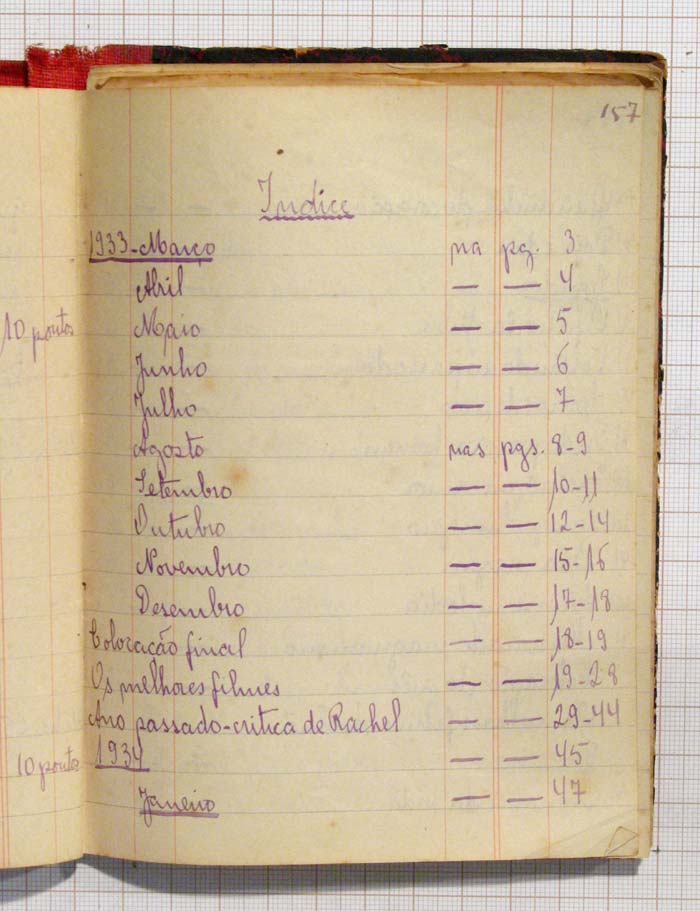 157
Indice
1933-Março na pg. 3
Abril — — 4
10 pontos
Maio — — 5
Junho — — 6
Julho — — 7
Agosto nas pgs. 8-9
Setembro — — 10-11
Outubro — — 12-14
Novembro — — 15-16
Desembro — — 17-18
Colocação final — — 18-19
Os melhores filmes — — 19-28
Ano passado-critica de Rachel — — 29-44
10 pontos
1934 — — 45
Janeiro — — 47